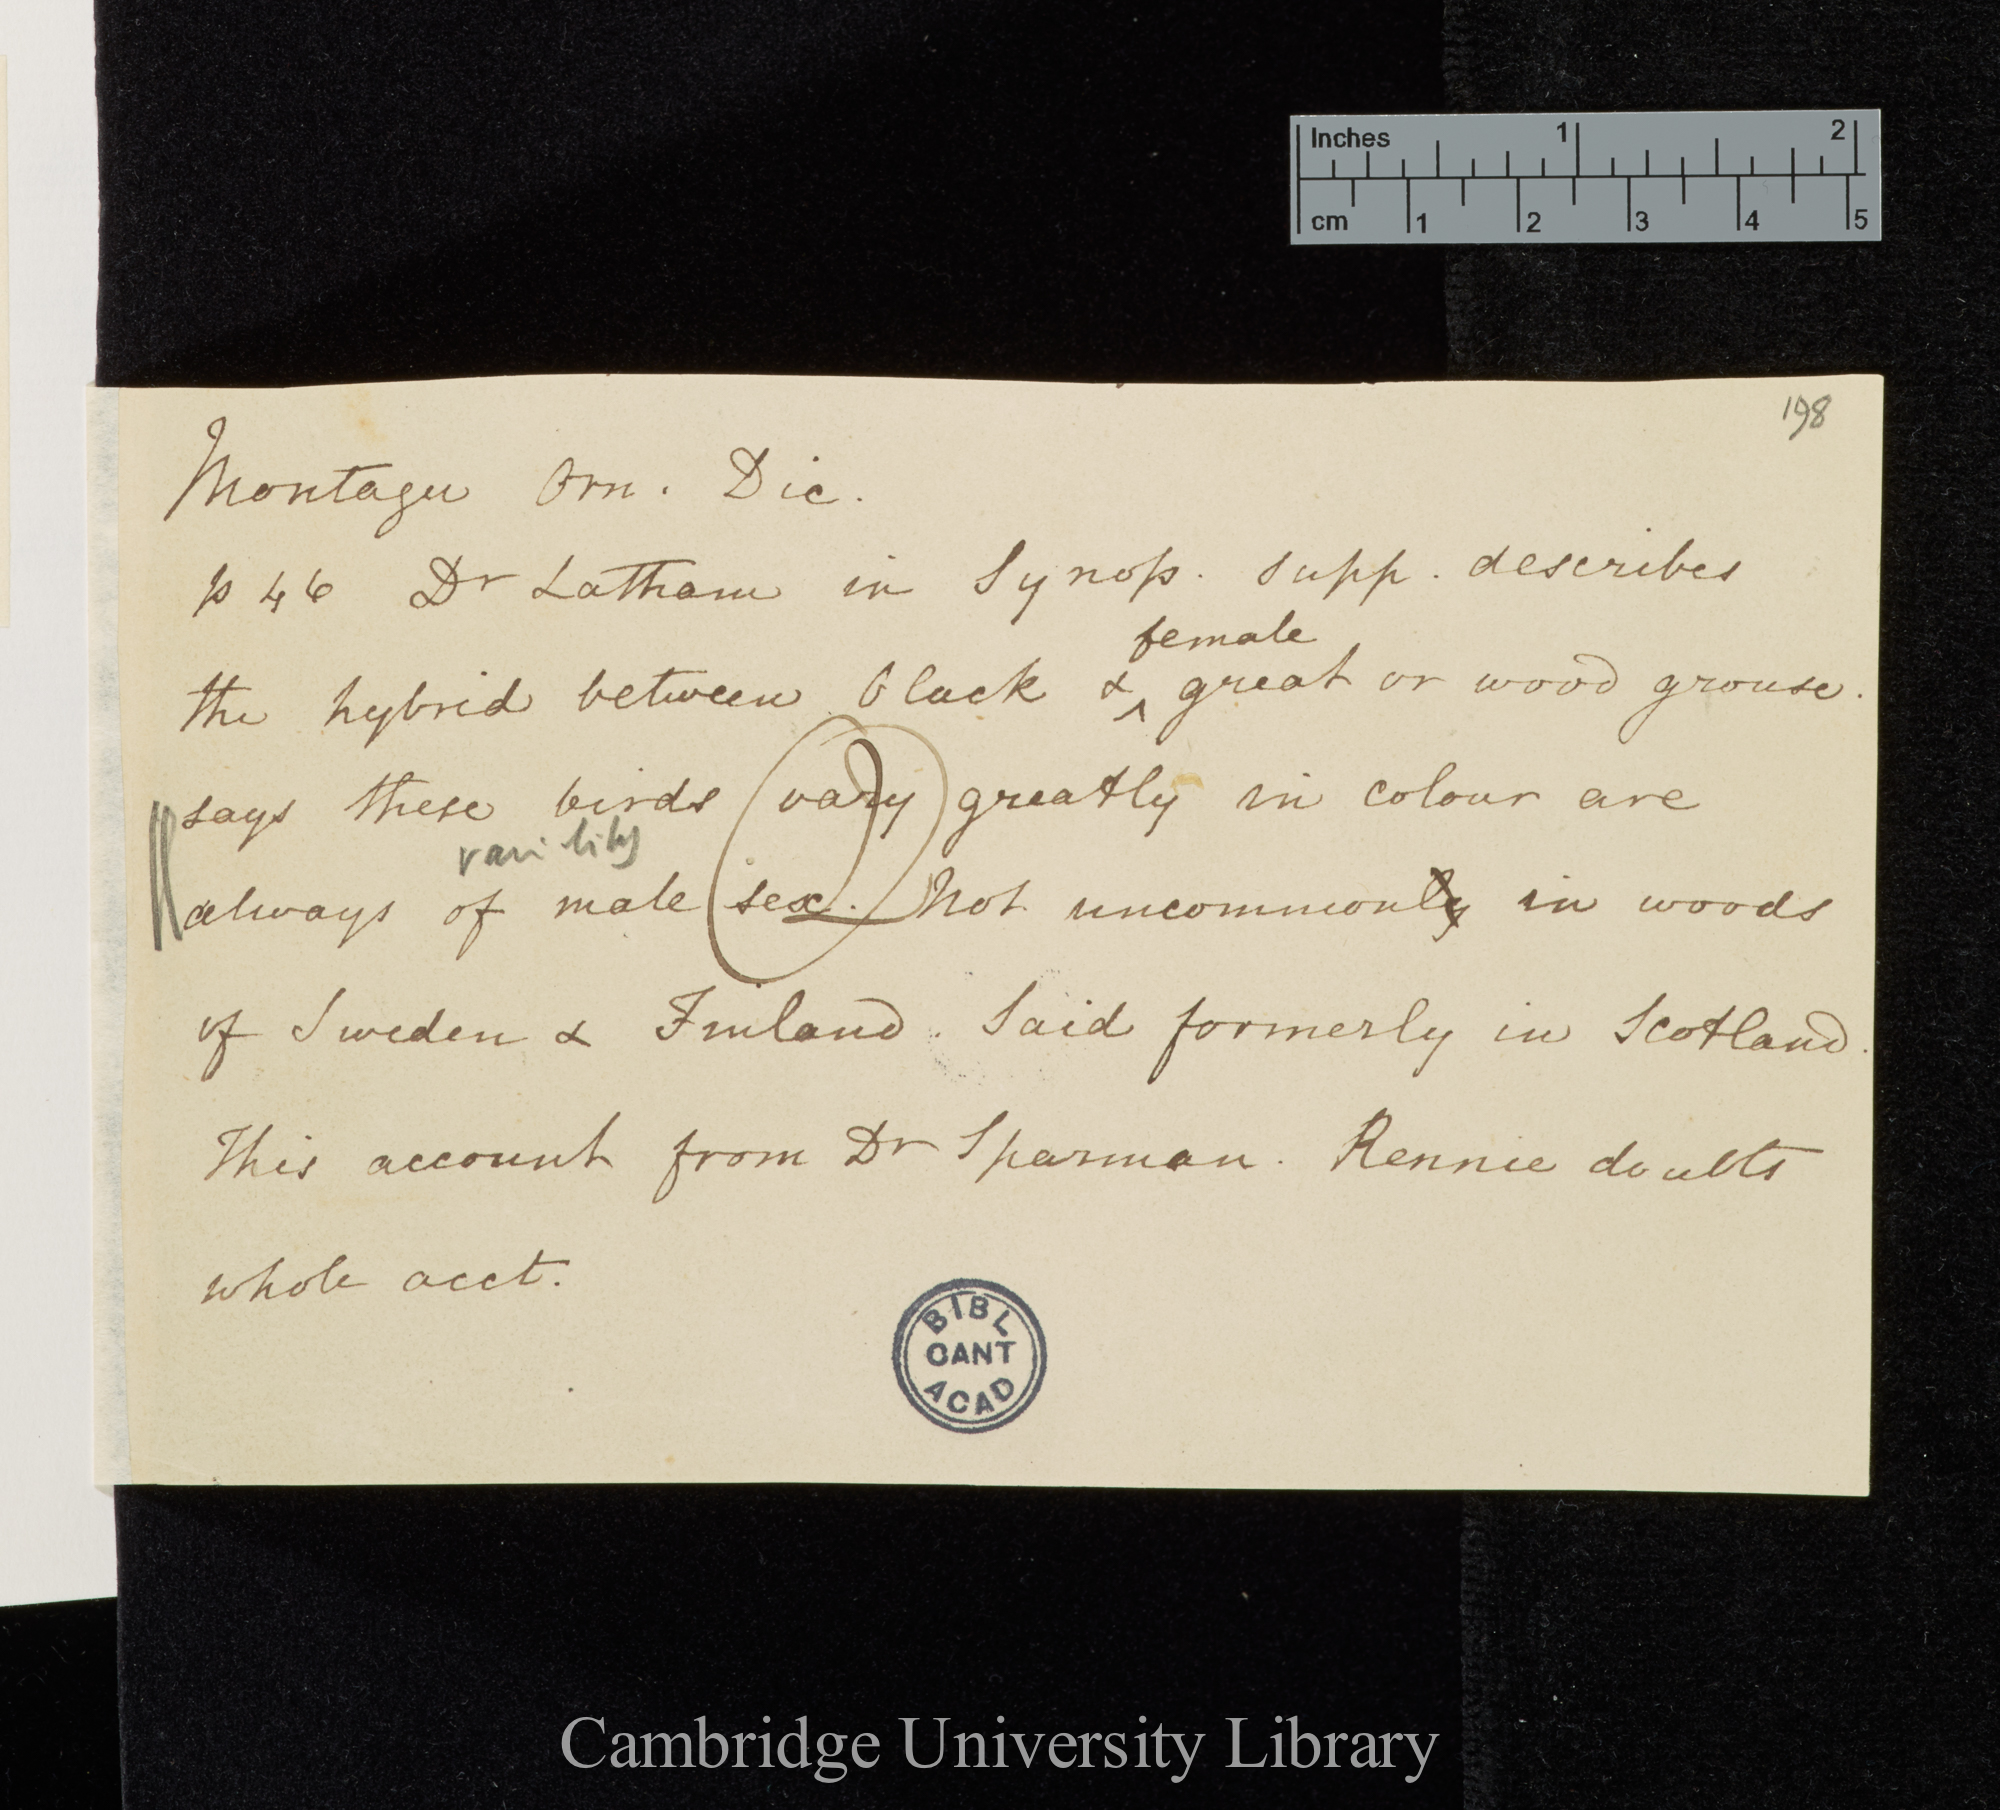 Inches 1 2
cm 1 2 3 4 5
198
Montagu Orn. Dic.
p 46 Dr Latham in Synop. supp. describes
female
the hybrid between black & ^ great or wood grouse.
says these birds vary greatly in colour are
always of male sex. Not uncommonly in woods
of Sweden & Finland. Said formerly in Scotland.
This account from Dr Sparman. Rennie doubts
whole acct.
BIBL
CANT
ACAD
Cambridge University Library